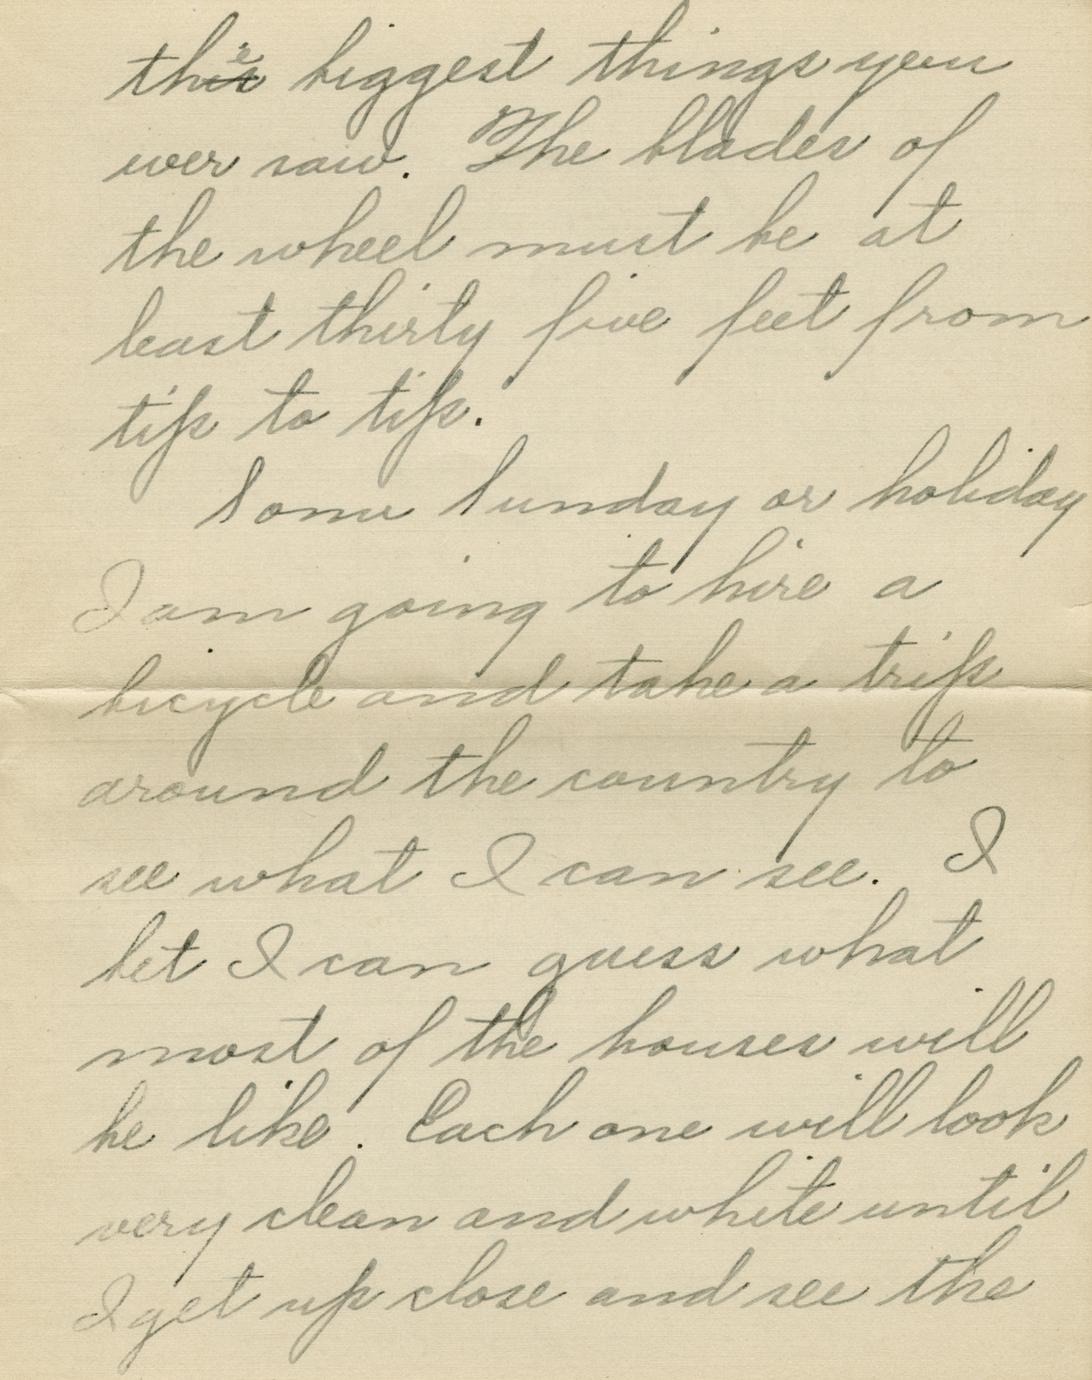 the biggest things you
ever saw. The blades of
the wheel must be at
least thirty five feet from
tip to tip.
Some Sunday or holiday
I am going to hire a
bicycle and take a trip
around the country to
see what I can see. I
bet I can guess what
most of the houses will
be like. Each one will look
very clean and white until
I get up close and see the